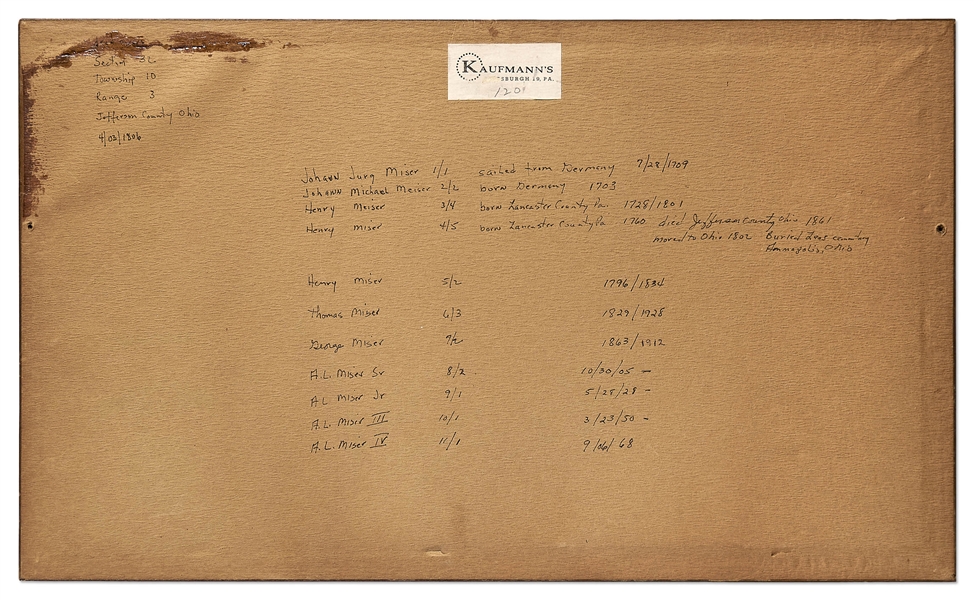 KAUFMANN'S
SBURGH 19, PA.
1201
Section 32
Township 10
Range 3
Jefferson County Ohio
4/02/1806
Johann Jurg Miser 1/1 sailed from Germany 7/28/1709
Johann Michael Meiser 2/2 born Germany 1703
Henry Meiser 3/4 born Lancaster County Pa. 1728/1801
Henry Miser 4/5 born Lancaster County Pa 1760 died Jefferson County Ohio 1861
moved to Ohio 1802 Buried
Annapolis, Ohio
Henry Miser 5/2 1796/1834
Thomas Miser 6/3 1829/1928
George Miser 1863/1912
A.L. Miser Sr 8/2 10/30/05 –
A L Miser Jr 9/1 5/28/28 –
A.L. Miser III 10/1 3/23/50 –
A.L. Miser IV 11/1 9/06/68